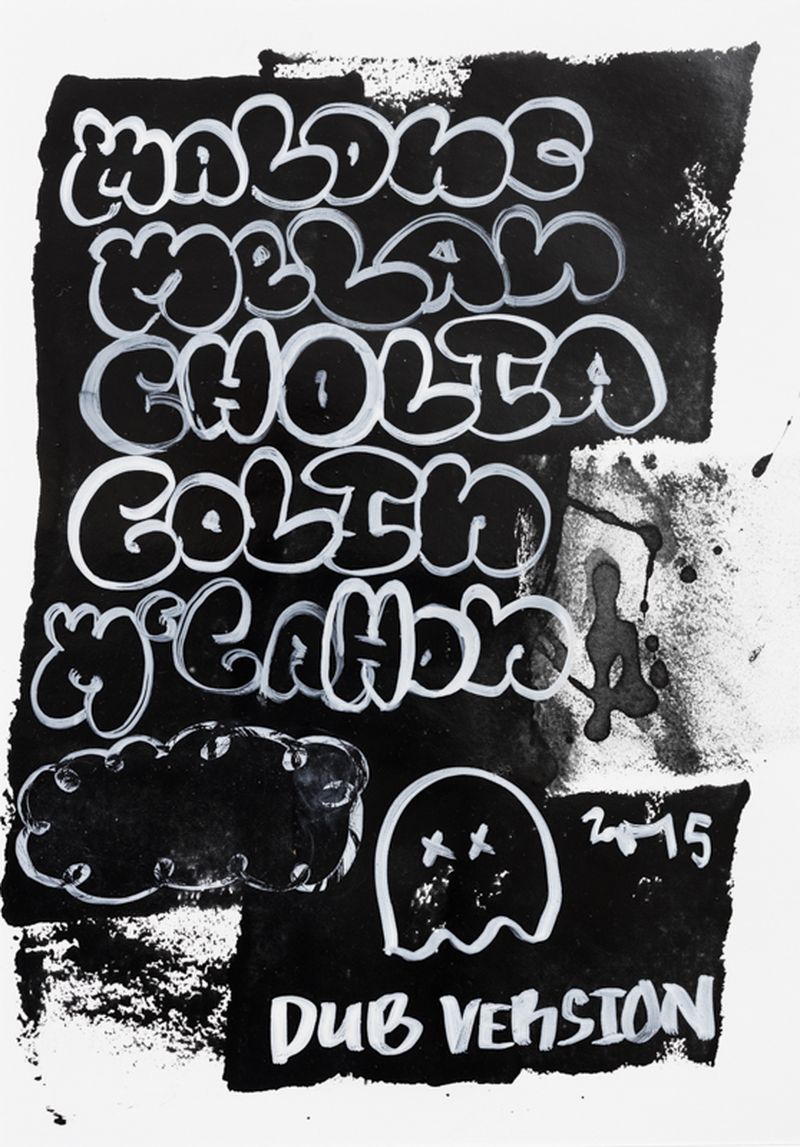 MALONE
MeLAN
CHOLIA
COLIN
McCAHON
2015
DUB VERSION